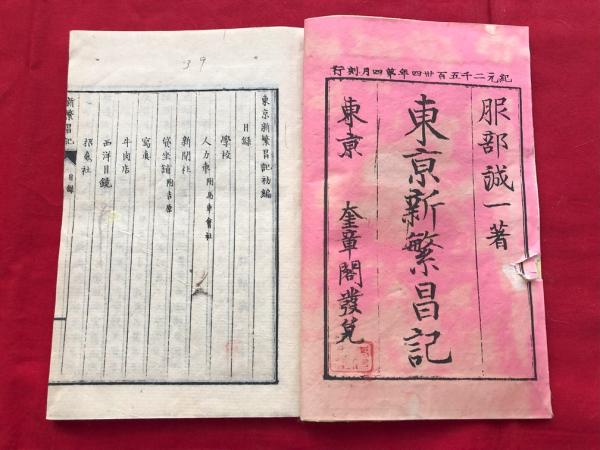 紀元二千五百卅四年第四月刻行
服部誠一著
東京新繁昌記
東京 奎章閣發兌
39
東京新繁昌記初編
目録
學校
人力車 附馬車會社
新聞社
貸坐鋪 附吉原
寫真
牛肉店
西洋目鏡
招魂社
新繁昌記 目録